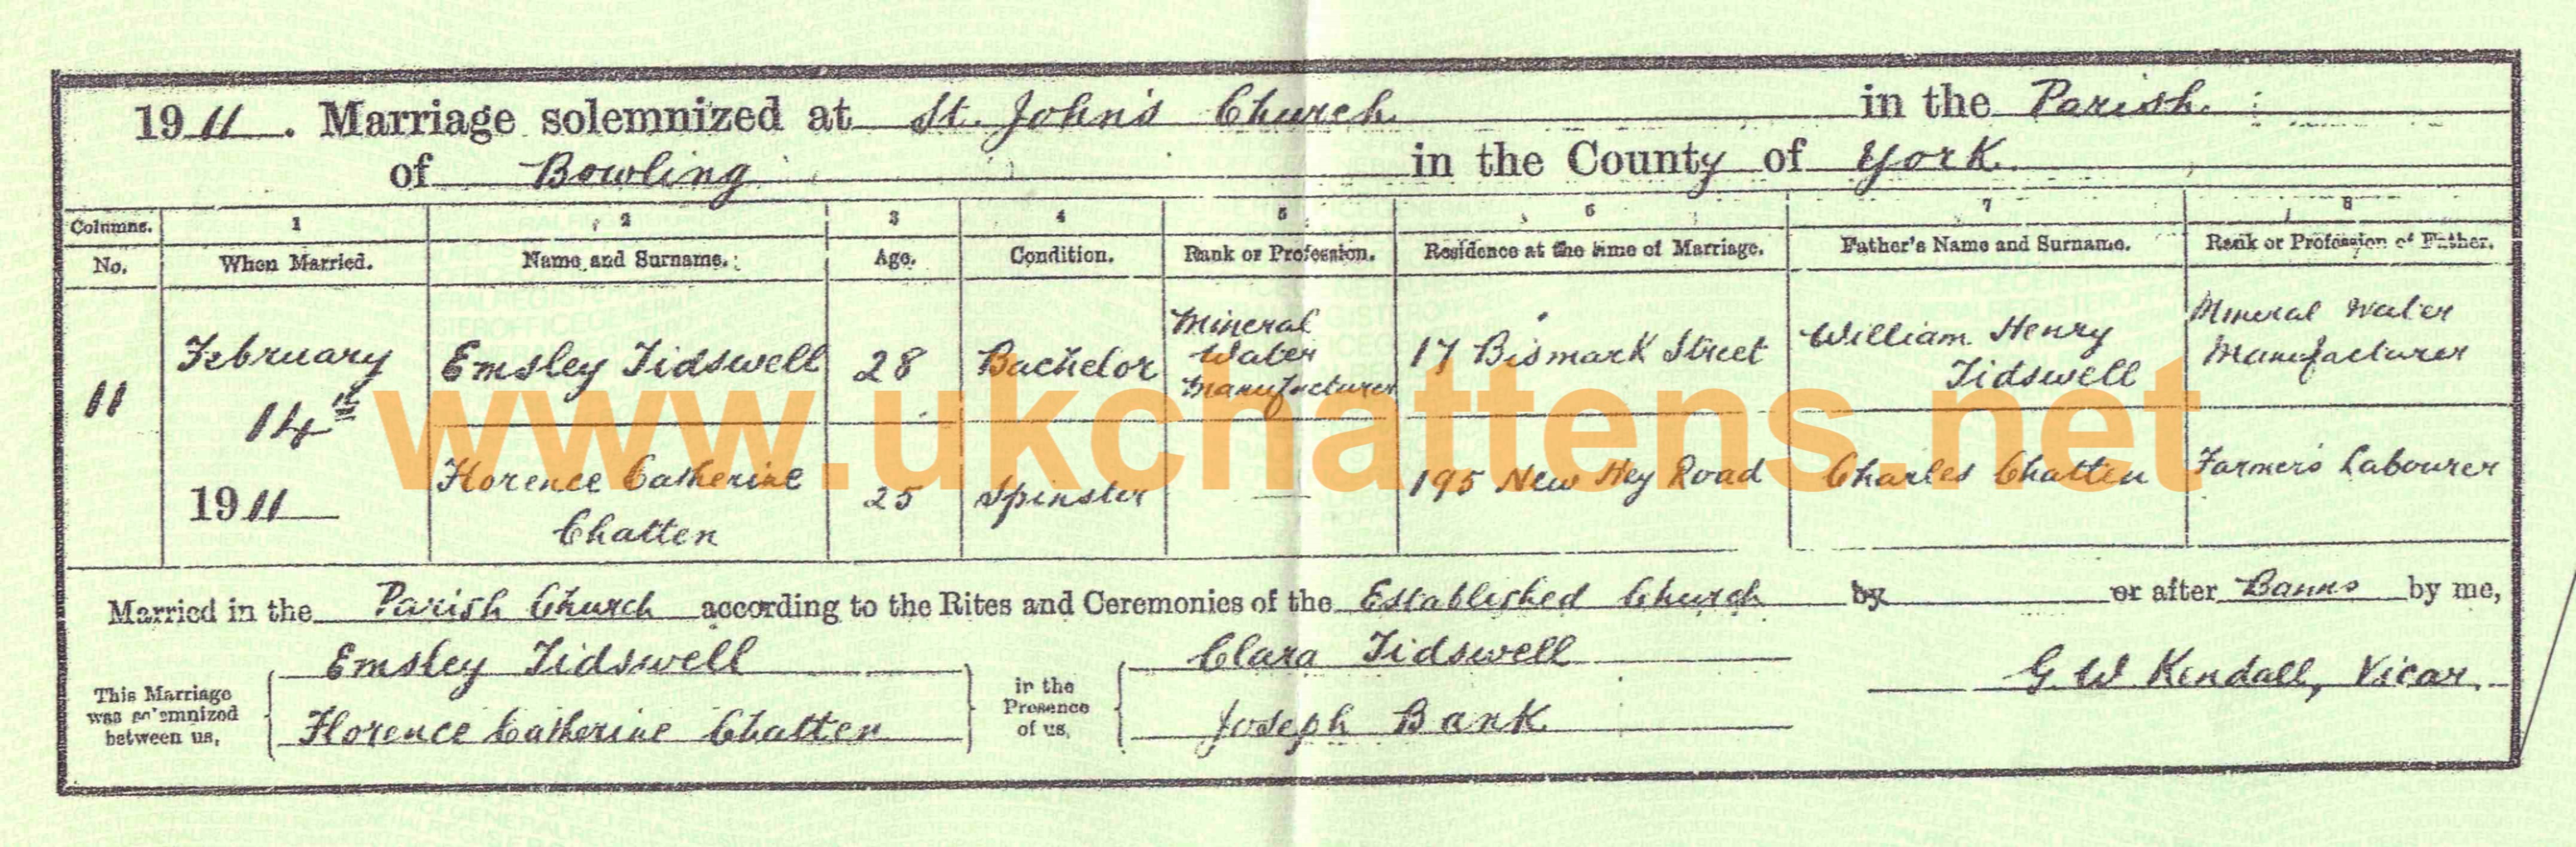 1911. Marriage solemnized at St. John's Church in the Parish
of Bowling in the County of York.
Columns. 1 2 3 4 5 6 7 8
No. When Married. Name and Surname. Age. Condition. Rank or Profession. Residence at the time of Marriage. Father's Name and Surname. Rank or Profession of Father.
11
February
14th
1911
Emsley Tidswell
28
Bachelor
Mineral
Water
Manufacturer
17 Bismark Street
William Henry
Tidswell
Mineral Water
Manufacturer
Florence Catherine
Chatten
25
Spinster
—
195 New Hey Road
Charles Chatten
Farmer's Labourer
www.ukchattens.net
Married in the Parish Church according to the Rites and Ceremonies of the Established Church by or after Banns by me,
This Marriage
was solemnized
between us,
Emsley Tidswell
Florence Catherine Chatten
in the
Presence
of us,
Clara Tidswell
Joseph Bank
G. W. Kendall, Vicar.